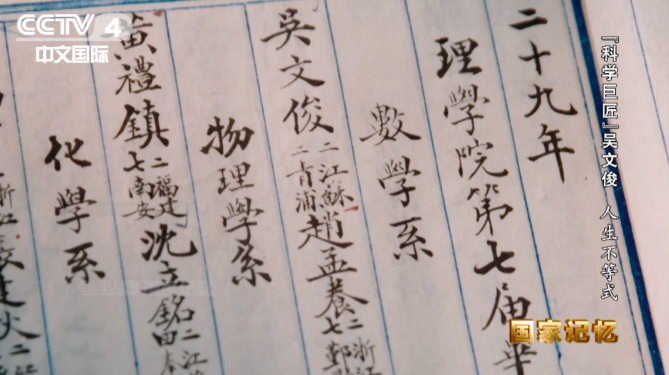 CCTV 4
中文国际
『科学巨匠』吴文俊 人生不等式
国家记忆
二十九年
理學院第七届畢
數學系
吳文俊 二二 江蘇青浦 趙孟養 二七 浙江鄞
物理學系
黃禮鎮 二七 福建南安 沈立銘 二
化學系
浙江